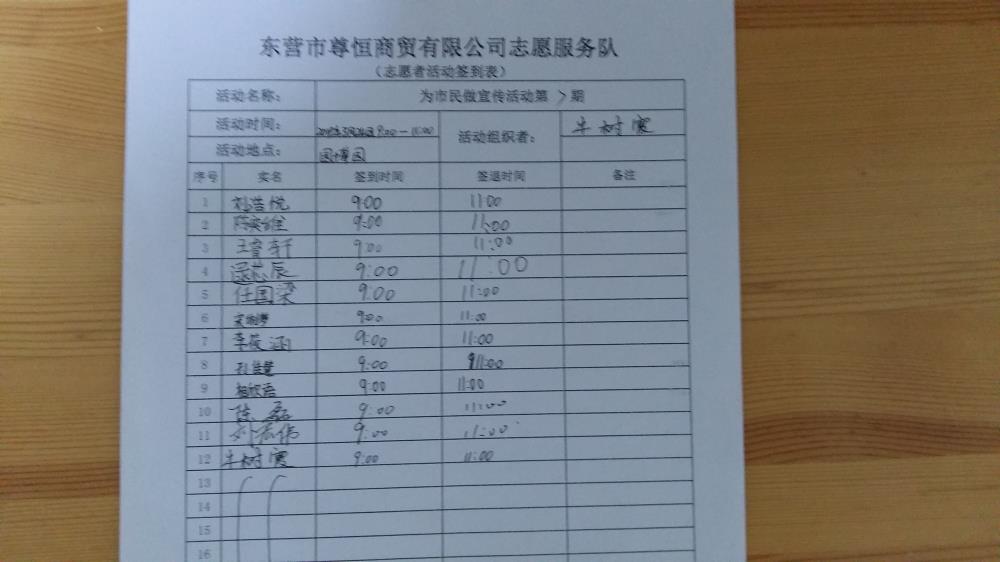 东营市尊恒商贸有限公司志愿服务队
（志愿者活动签到表）
活动名称： 为市民做宣传活动第 7 期
活动时间： 9:00-11:00 活动组织者： 牛树寞
活动地点： 园博园
序号 实名 签到时间 签退时间 备注
1 刘浩悦 9:00 11:00
2 9:00 11:00
3 9:00 11:00
4 9:00 11:00
5 任国梁 9:00 11:00
6 9:00 11:00
7 李筱涵 9:00 11:00
8 9:00 11:00
9 9:00 11:00
10 陈磊 9:00 11:00
11 9:00 11:00
12 牛树寞 9:00 11:00
13
14
15
16